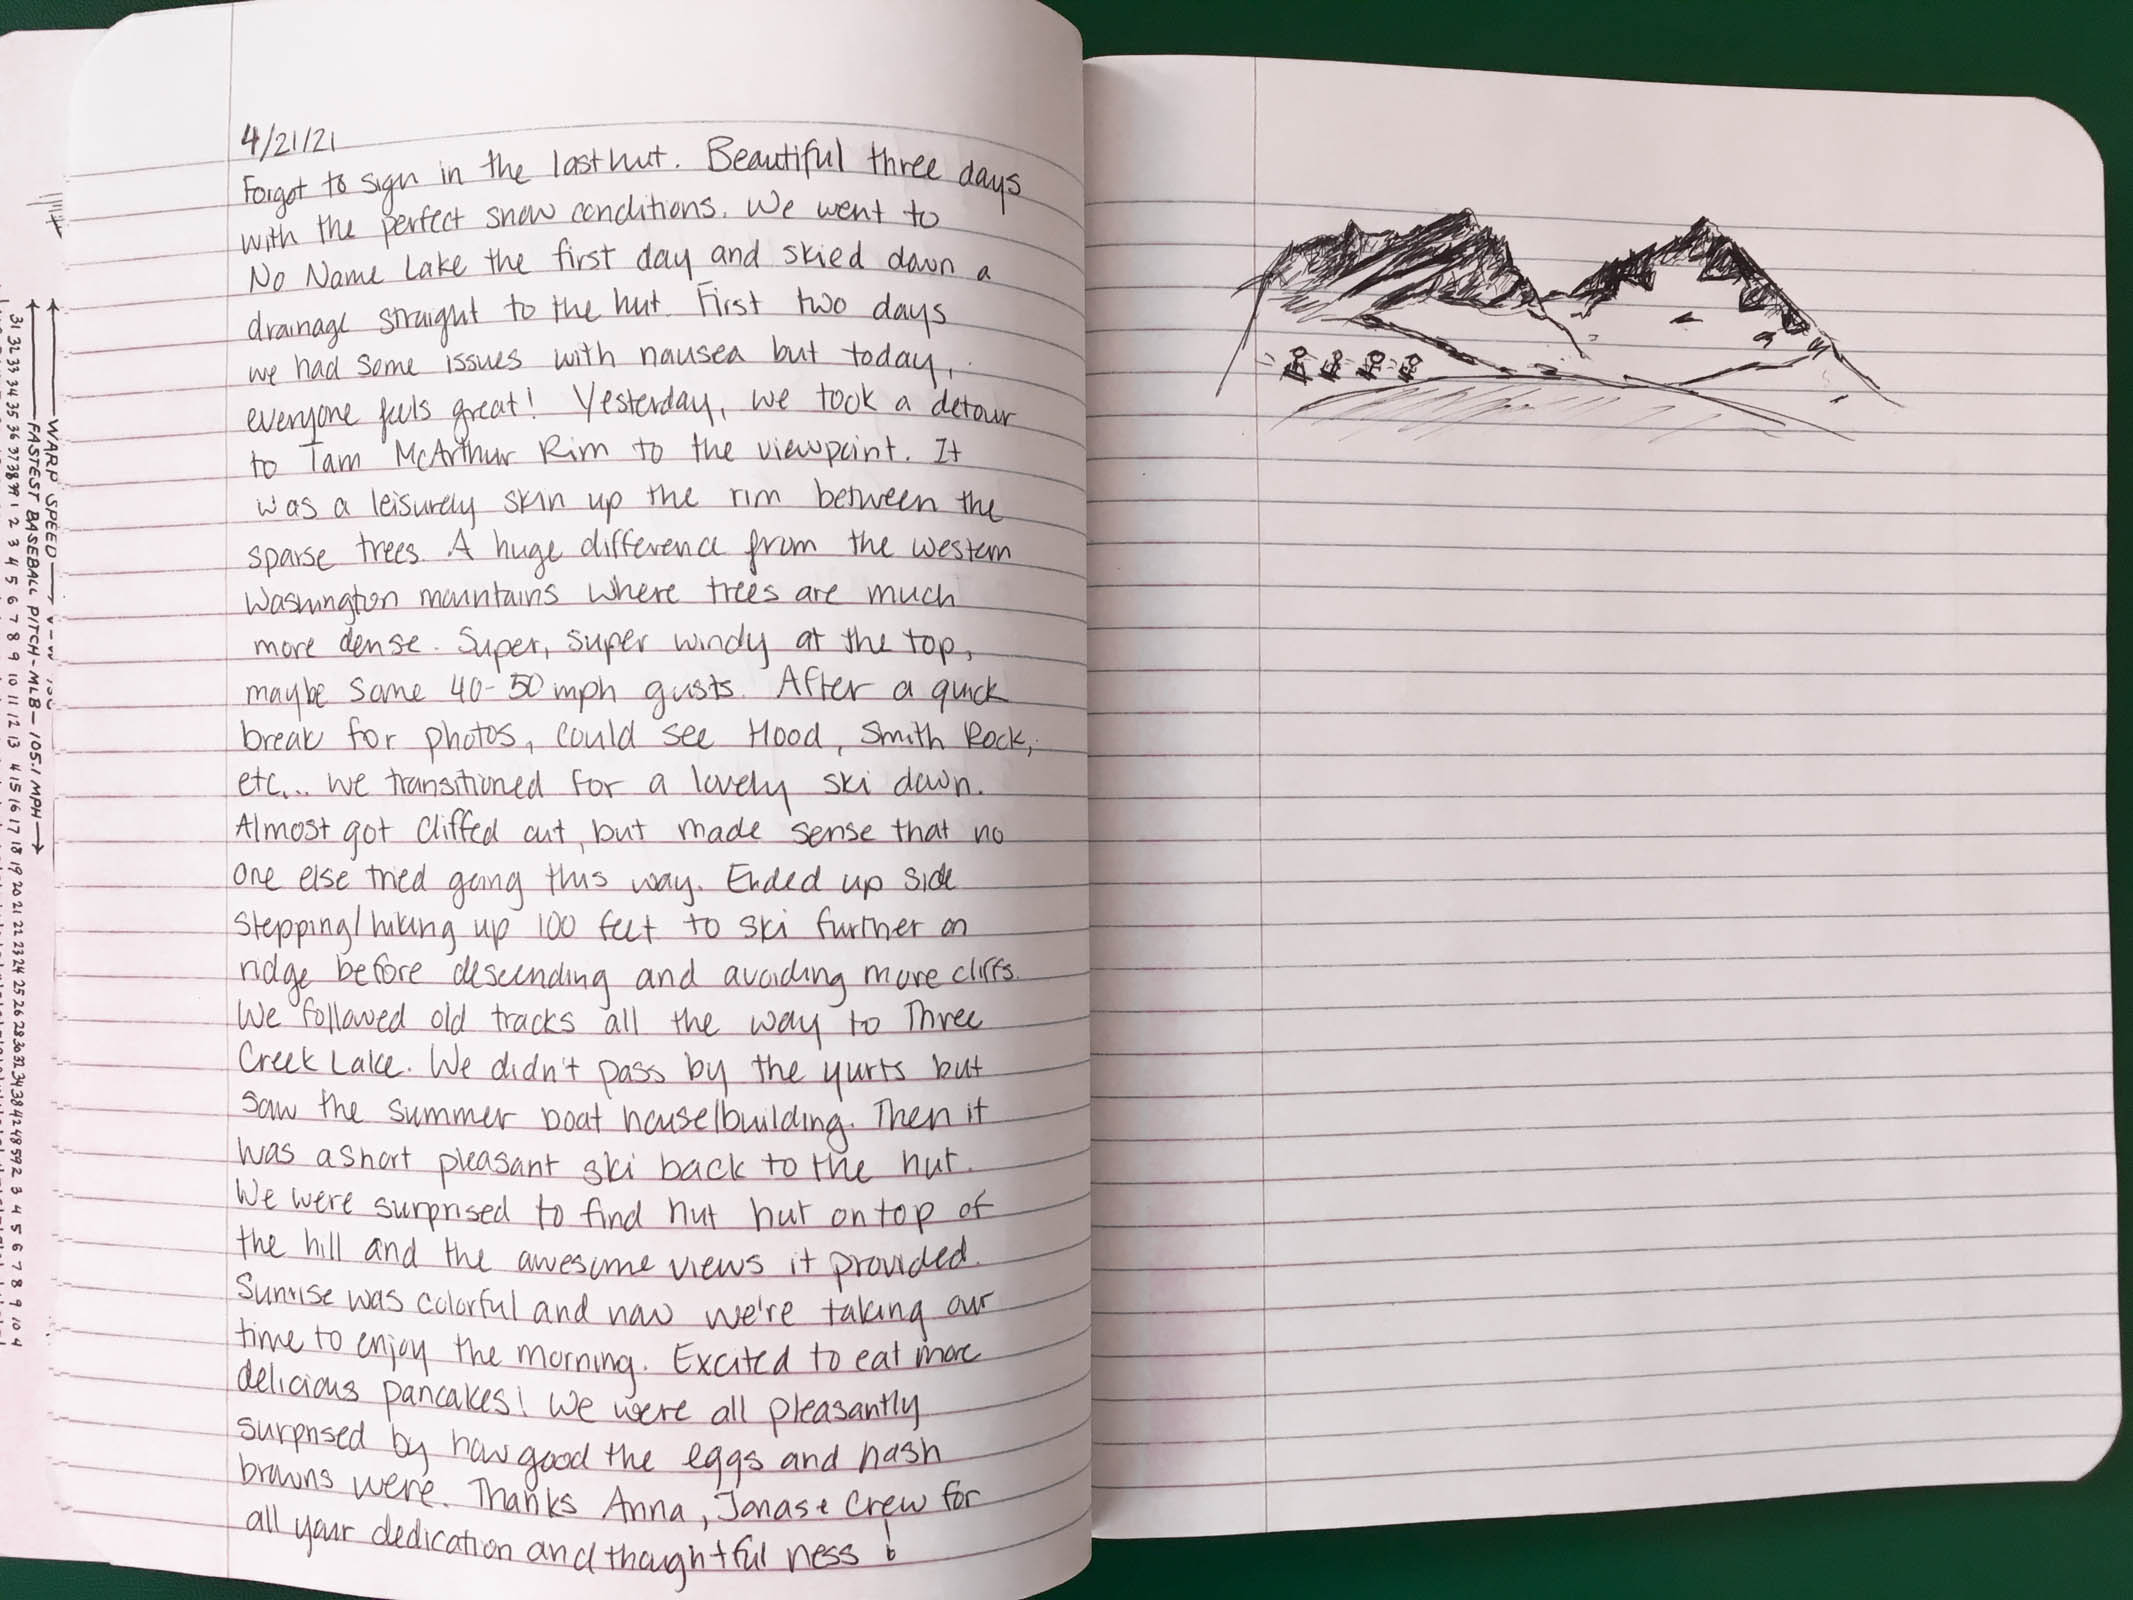 4/21/21
Forgot to sign in the last hut. Beautiful three days
with the perfect snow conditions. We went to
No Name Lake the first day and skied down a
drainage straight to the hut. First two days
we had some issues with nausea but today,
everyone feels great! Yesterday, we took a detour
to Tam McArthur Rim to the viewpoint. It
was a leisurely skin up the rim between the
sparse trees. A huge difference from the western
Washington mountains where trees are much
more dense. Super, super windy at the top,
maybe some 40-50 mph gusts. After a quick
break for photos, could see Hood, Smith Rock,
etc... we transitioned for a lovely ski down.
Almost got cliffed out, but made sense that no
one else tried going this way. Ended up side
stepping/hiking up 100 feet to ski further on
ridge before descending and avoiding more cliffs.
We followed old tracks all the way to Three
Creek Lake. We didn't pass by the yurts but
saw the summer boat house/building. Then it
was a short pleasant ski back to the hut.
We were surprised to find hut hut on top of
the hill and the awesome views it provided.
Sunrise was colorful and now we're taking our
time to enjoy the morning. Excited to eat more
delicious pancakes! We were all pleasantly
surprised by how good the eggs and hash
browns were. Thanks Anna, Jonas + Crew for
all your dedication and thoughtful ness!
WARP SPEED
FASTEST BASEBALL PITCH - MLB - 105.1 MPH
31 32 33 34 35 36 37 38 39 1 2 3 4 5 6 7 8 9 10 11 12 13 4 15 16 17 18 19 20 21 22 23 24 25 26 28 30 32 34 38 42 48 59 2 3 4 5 6 7 8 9 10 4